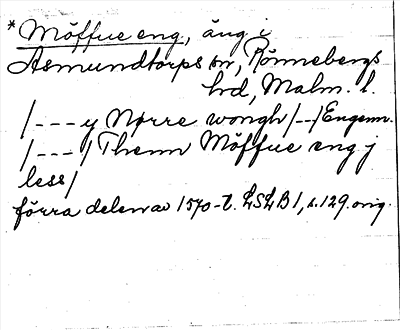 *Möffue eng, äng i
Asmundtorps sn, Rönnebergs
hd, Malm. l.
/---y Nørre wongh/--/Engenn.
/---/Thenn Möffue eng j
less/
förra delen av 1570-t. LSLB 1, s. 129. orig.